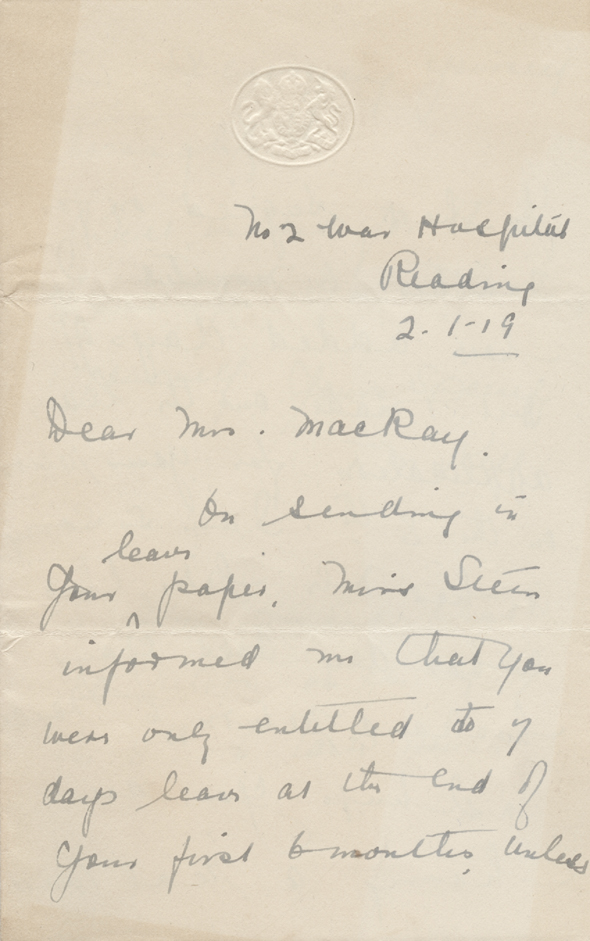 No 2 War Hospital
Reading
2-1-19
Dear Mrs. MacKay.
On sending in
leave
Your paper, Miss Stein
informed me that you
were only entitled to 7
days leave at the end of
your first 6 months, unless